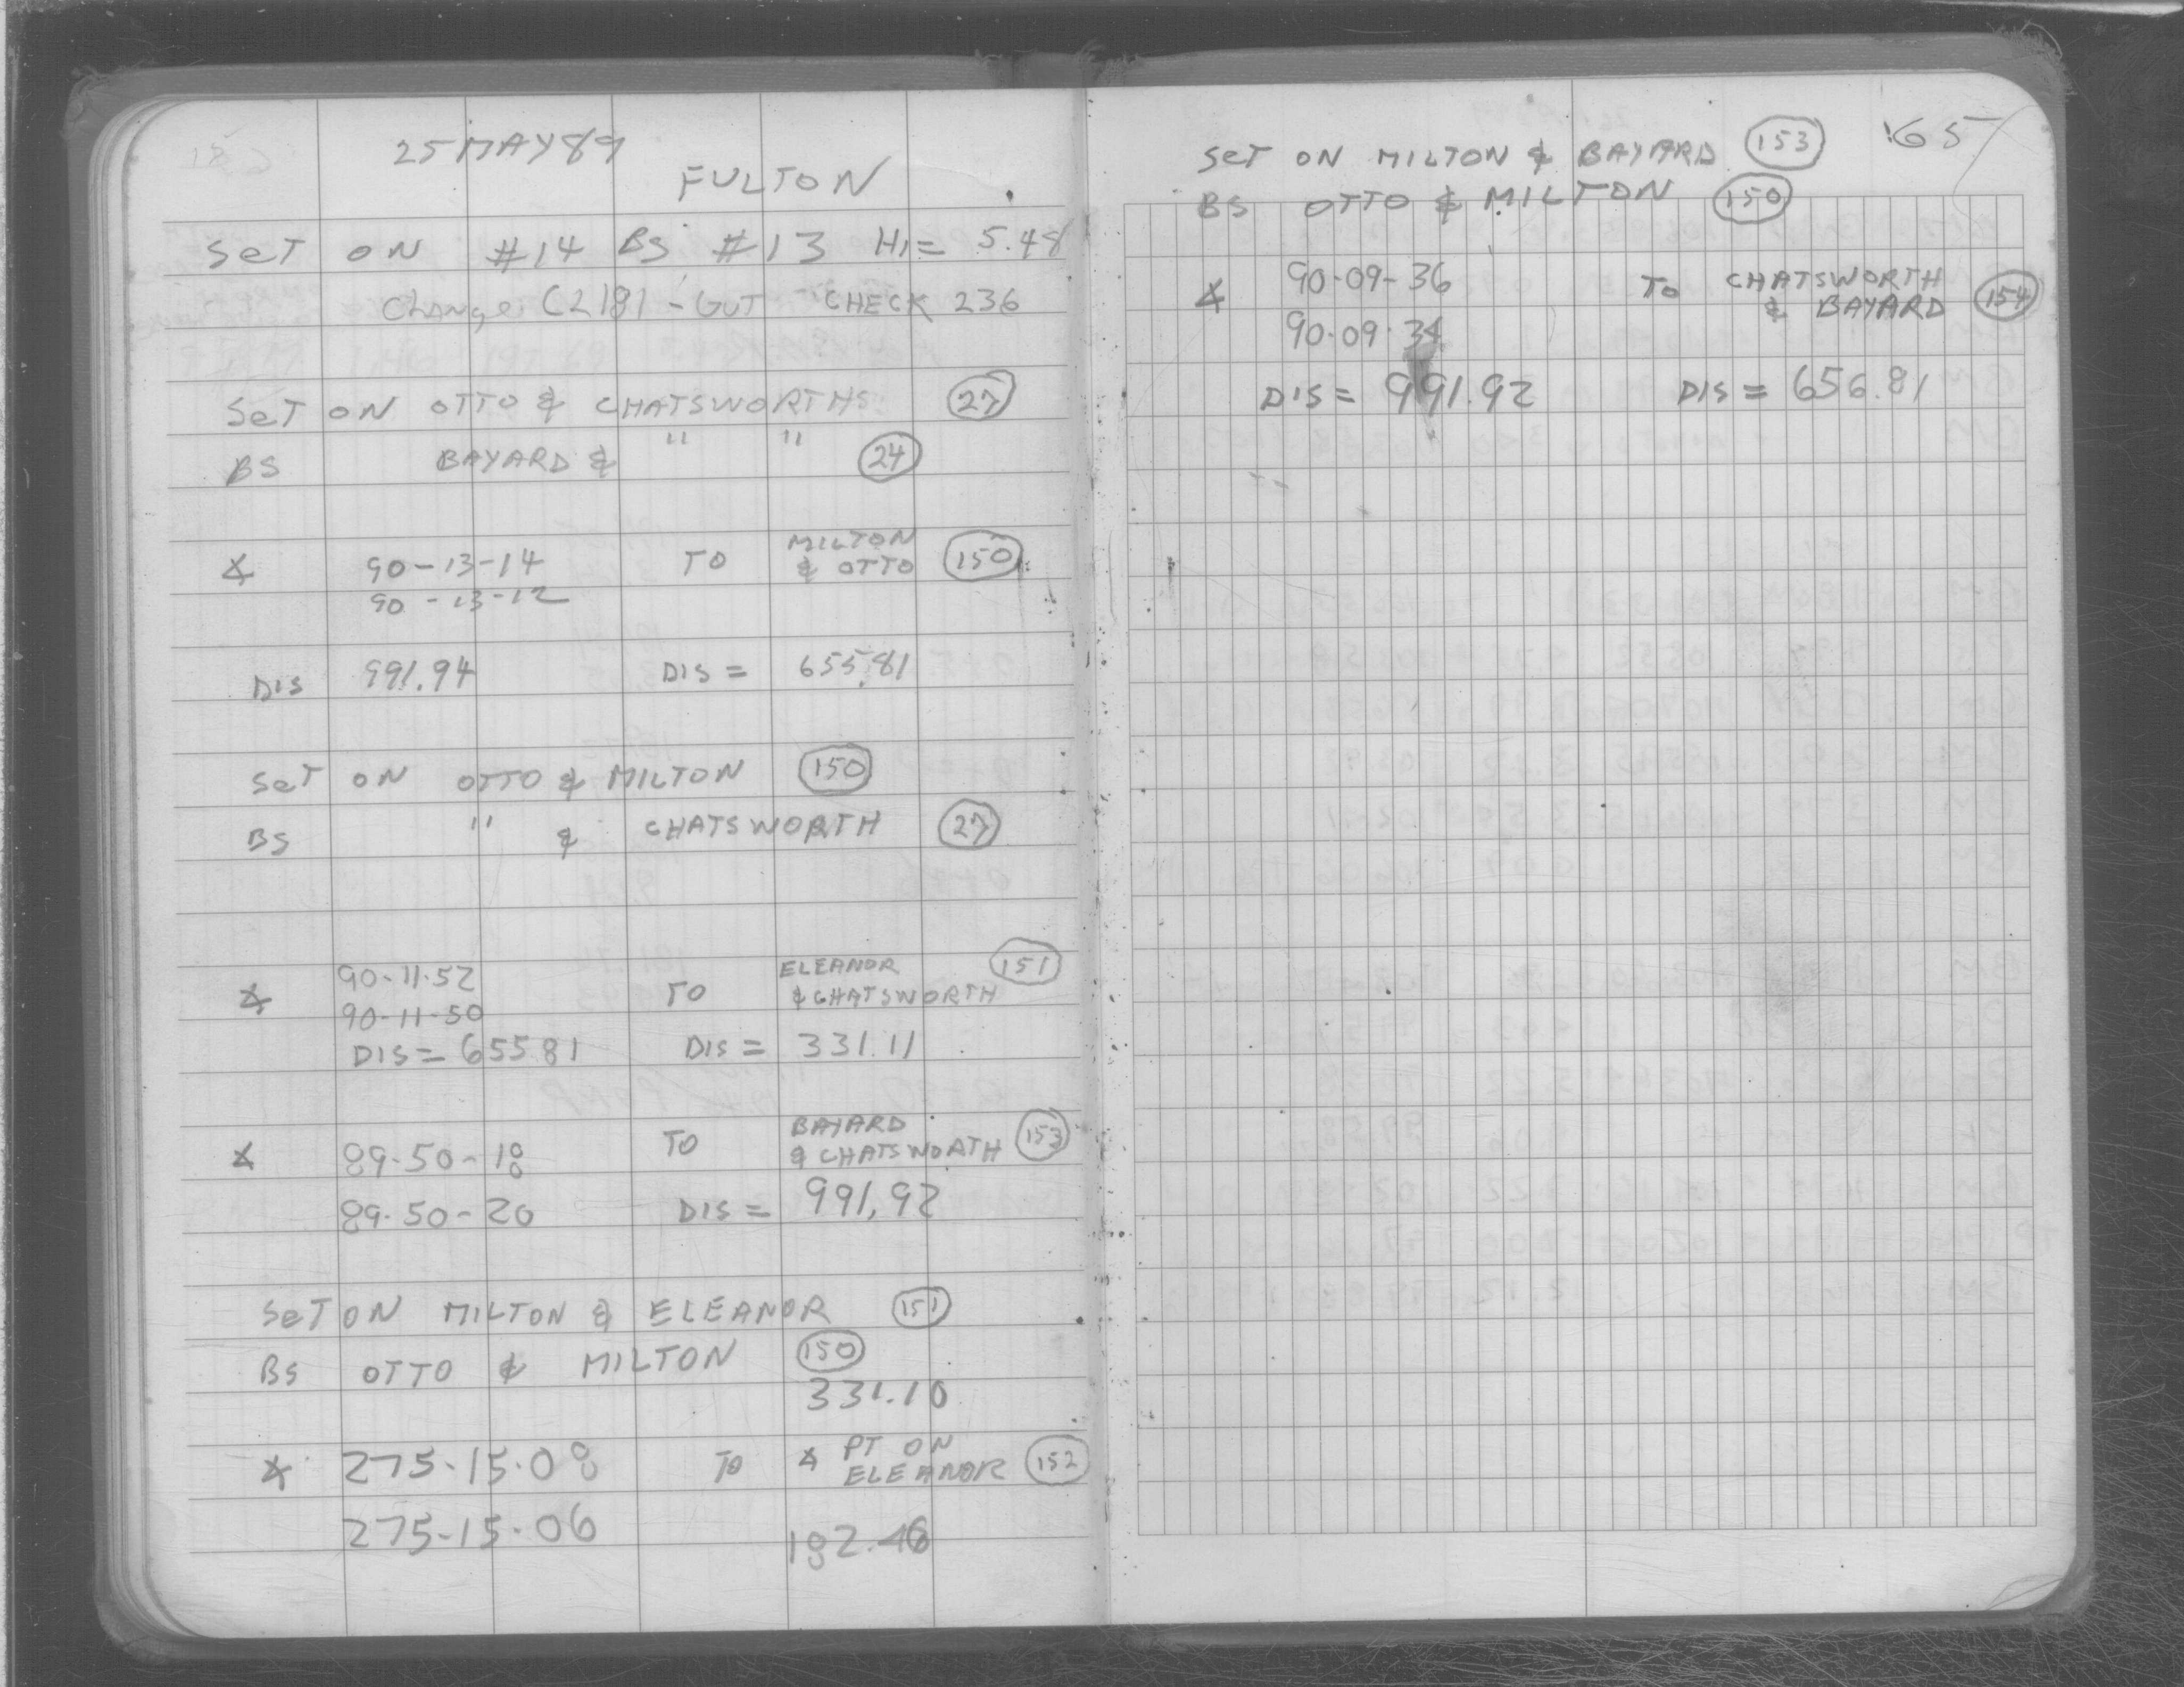 25 MAY 89
FULTON
SeT ON #14 BS #13 HI = 5.48
Change (218) - GUT CHECK 236
SeT ON OTTO & CHATSWORTHS 27
BS BAYARD & " " 24
∡ 90-13-14 TO MILTON & OTTO 150
90-13-12
DIS 991.94 DIS = 655.81
SeT ON OTTO & MILTON 150
BS " & CHATSWORTH 27
∡ 90-11-52 TO ELEANOR & CHATSWORTH 151
90-11-50
DIS = 655 81 DIS = 331.11
∡ 89-50-18 TO BAYARD & CHATSWORTH 153
89-50-20 DIS = 991,92
SeT ON MILTON & ELEANOR 151
BS OTTO & MILTON 150
331.10
∡ 275-15-08 TO ∡ PT ON ELEANOR 152
275-15-06 182.46
165
SeT ON MILTON & BAYARD 153
BS OTTO & MILTON 150
∡ 90-09-36 TO CHATSWORTH & BAYARD 154
90-09-34
DIS = 991.92 DIS = 656.81